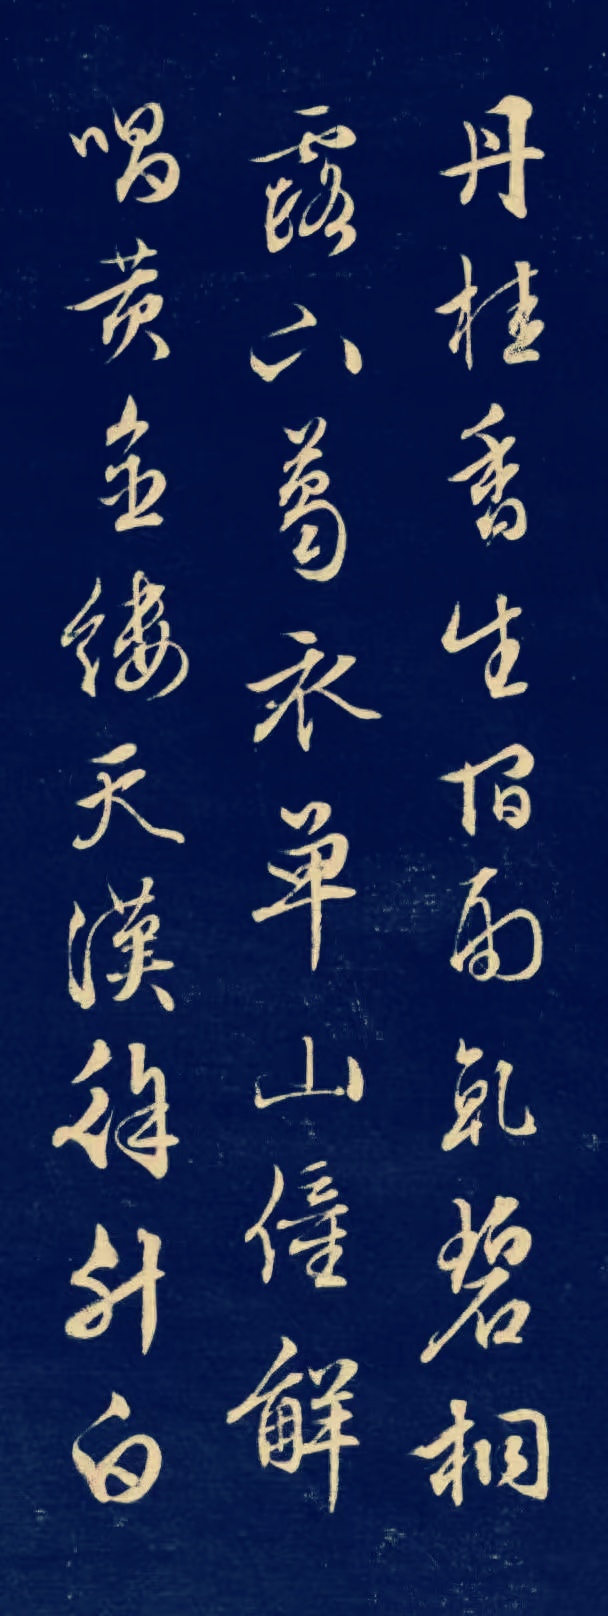 丹桂香生眉雨乾碧梧
露下葛衣單山僮解
唱黃金縷天漢徐升白